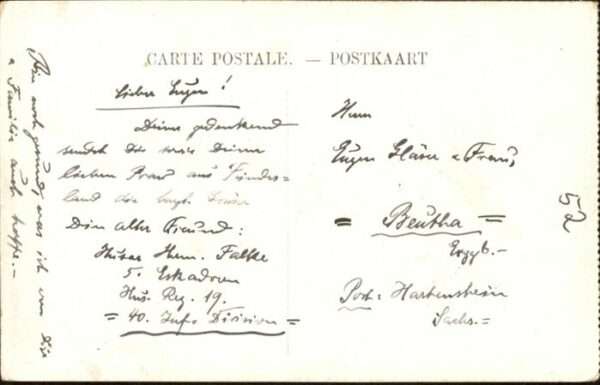 CARTE POSTALE. — POSTKAART
Lieber Eugen!
Deiner gedenkend
sendet Dir wie Deiner
lieben Frau aus Feindes-
land die
Dein alter Freund:
Husar Herm. Falke
5. Eskadron
Hus. Reg. 19.
= 40. Inf. Division =
Bin noch gesund, was ich von Dir
u Familie auch hoffe. -
Herrn
Eugen Gläser u Frau,
= Beutha =
Erzgb. -
Post: Hartenstein
Sachs. =
52